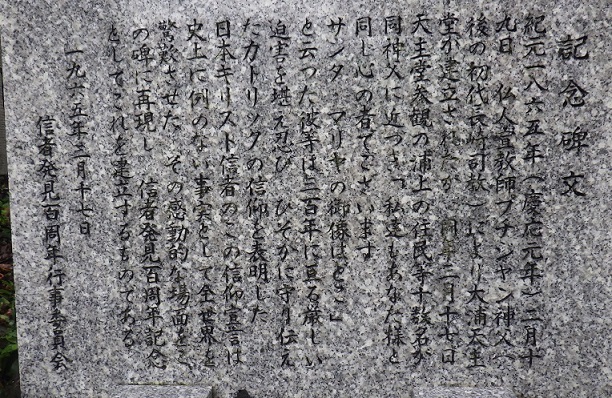 記念碑文
紀元一八六五年（慶応元年）二月十
九日 仏人宣教師プチジャン神父（
後の初代長崎司教）により大浦天主
堂が建立されたが 同年三月十七日
天主堂参観の浦上の住民等十数名が
同神父に近づき「私達もあなた様と
同じ心の者でございます
サンタ マリヤの御像はどこ」
と云つた彼等は三百年に亘る厳しい
迫害を堪え忍び ひそかに守り伝え
たカトリックの信仰を表明した
日本キリスト信者のこの信仰宣言は
史上に例のない事実として全世界を
驚歎させた その感動的な場面をこ
の碑に再現し 信者発見百周年記念
としてこれを建立するものである
一九六五年三月十七日
信者発見百周年行事委員会